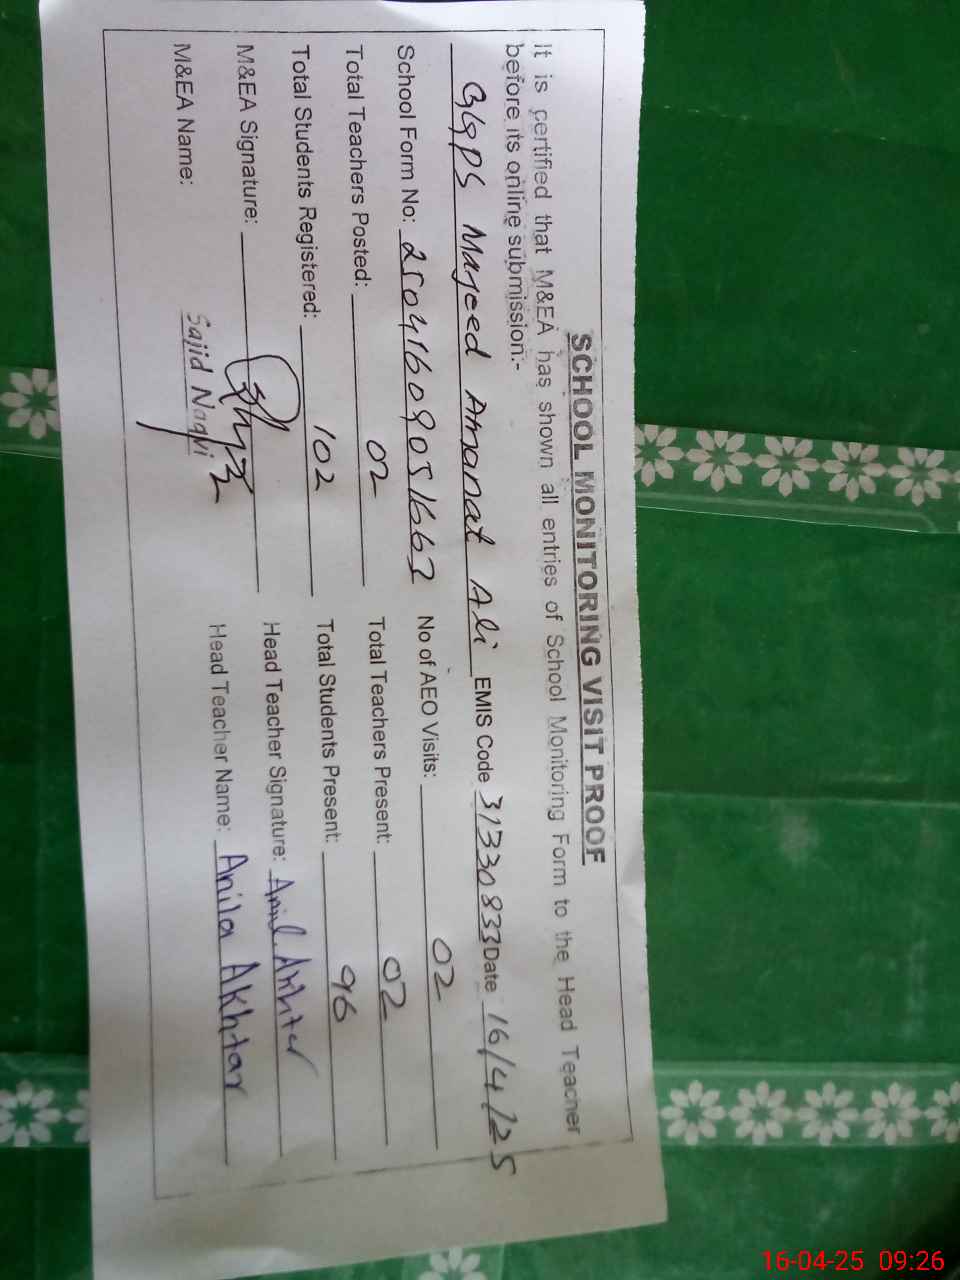 SCHOOL MONITORING VISIT PROOF
It is certified that M&EA has shown all entries of School Monitoring Form to the Head Teacher
before its online submission:-
GGPS Majeed Amanat Ali EMIS Code 31330833 Date 16/4/25
School Form No: 25041609051663 No of AEO Visits: 02
Total Teachers Posted: 02 Total Teachers Present: 02
Total Students Registered: 102 Total Students Present: 96
M&EA Signature: Head Teacher Signature: Akhter
M&EA Name: Sajid Naqvi Head Teacher Name: Anila Akhtar
16-04-25 09:26